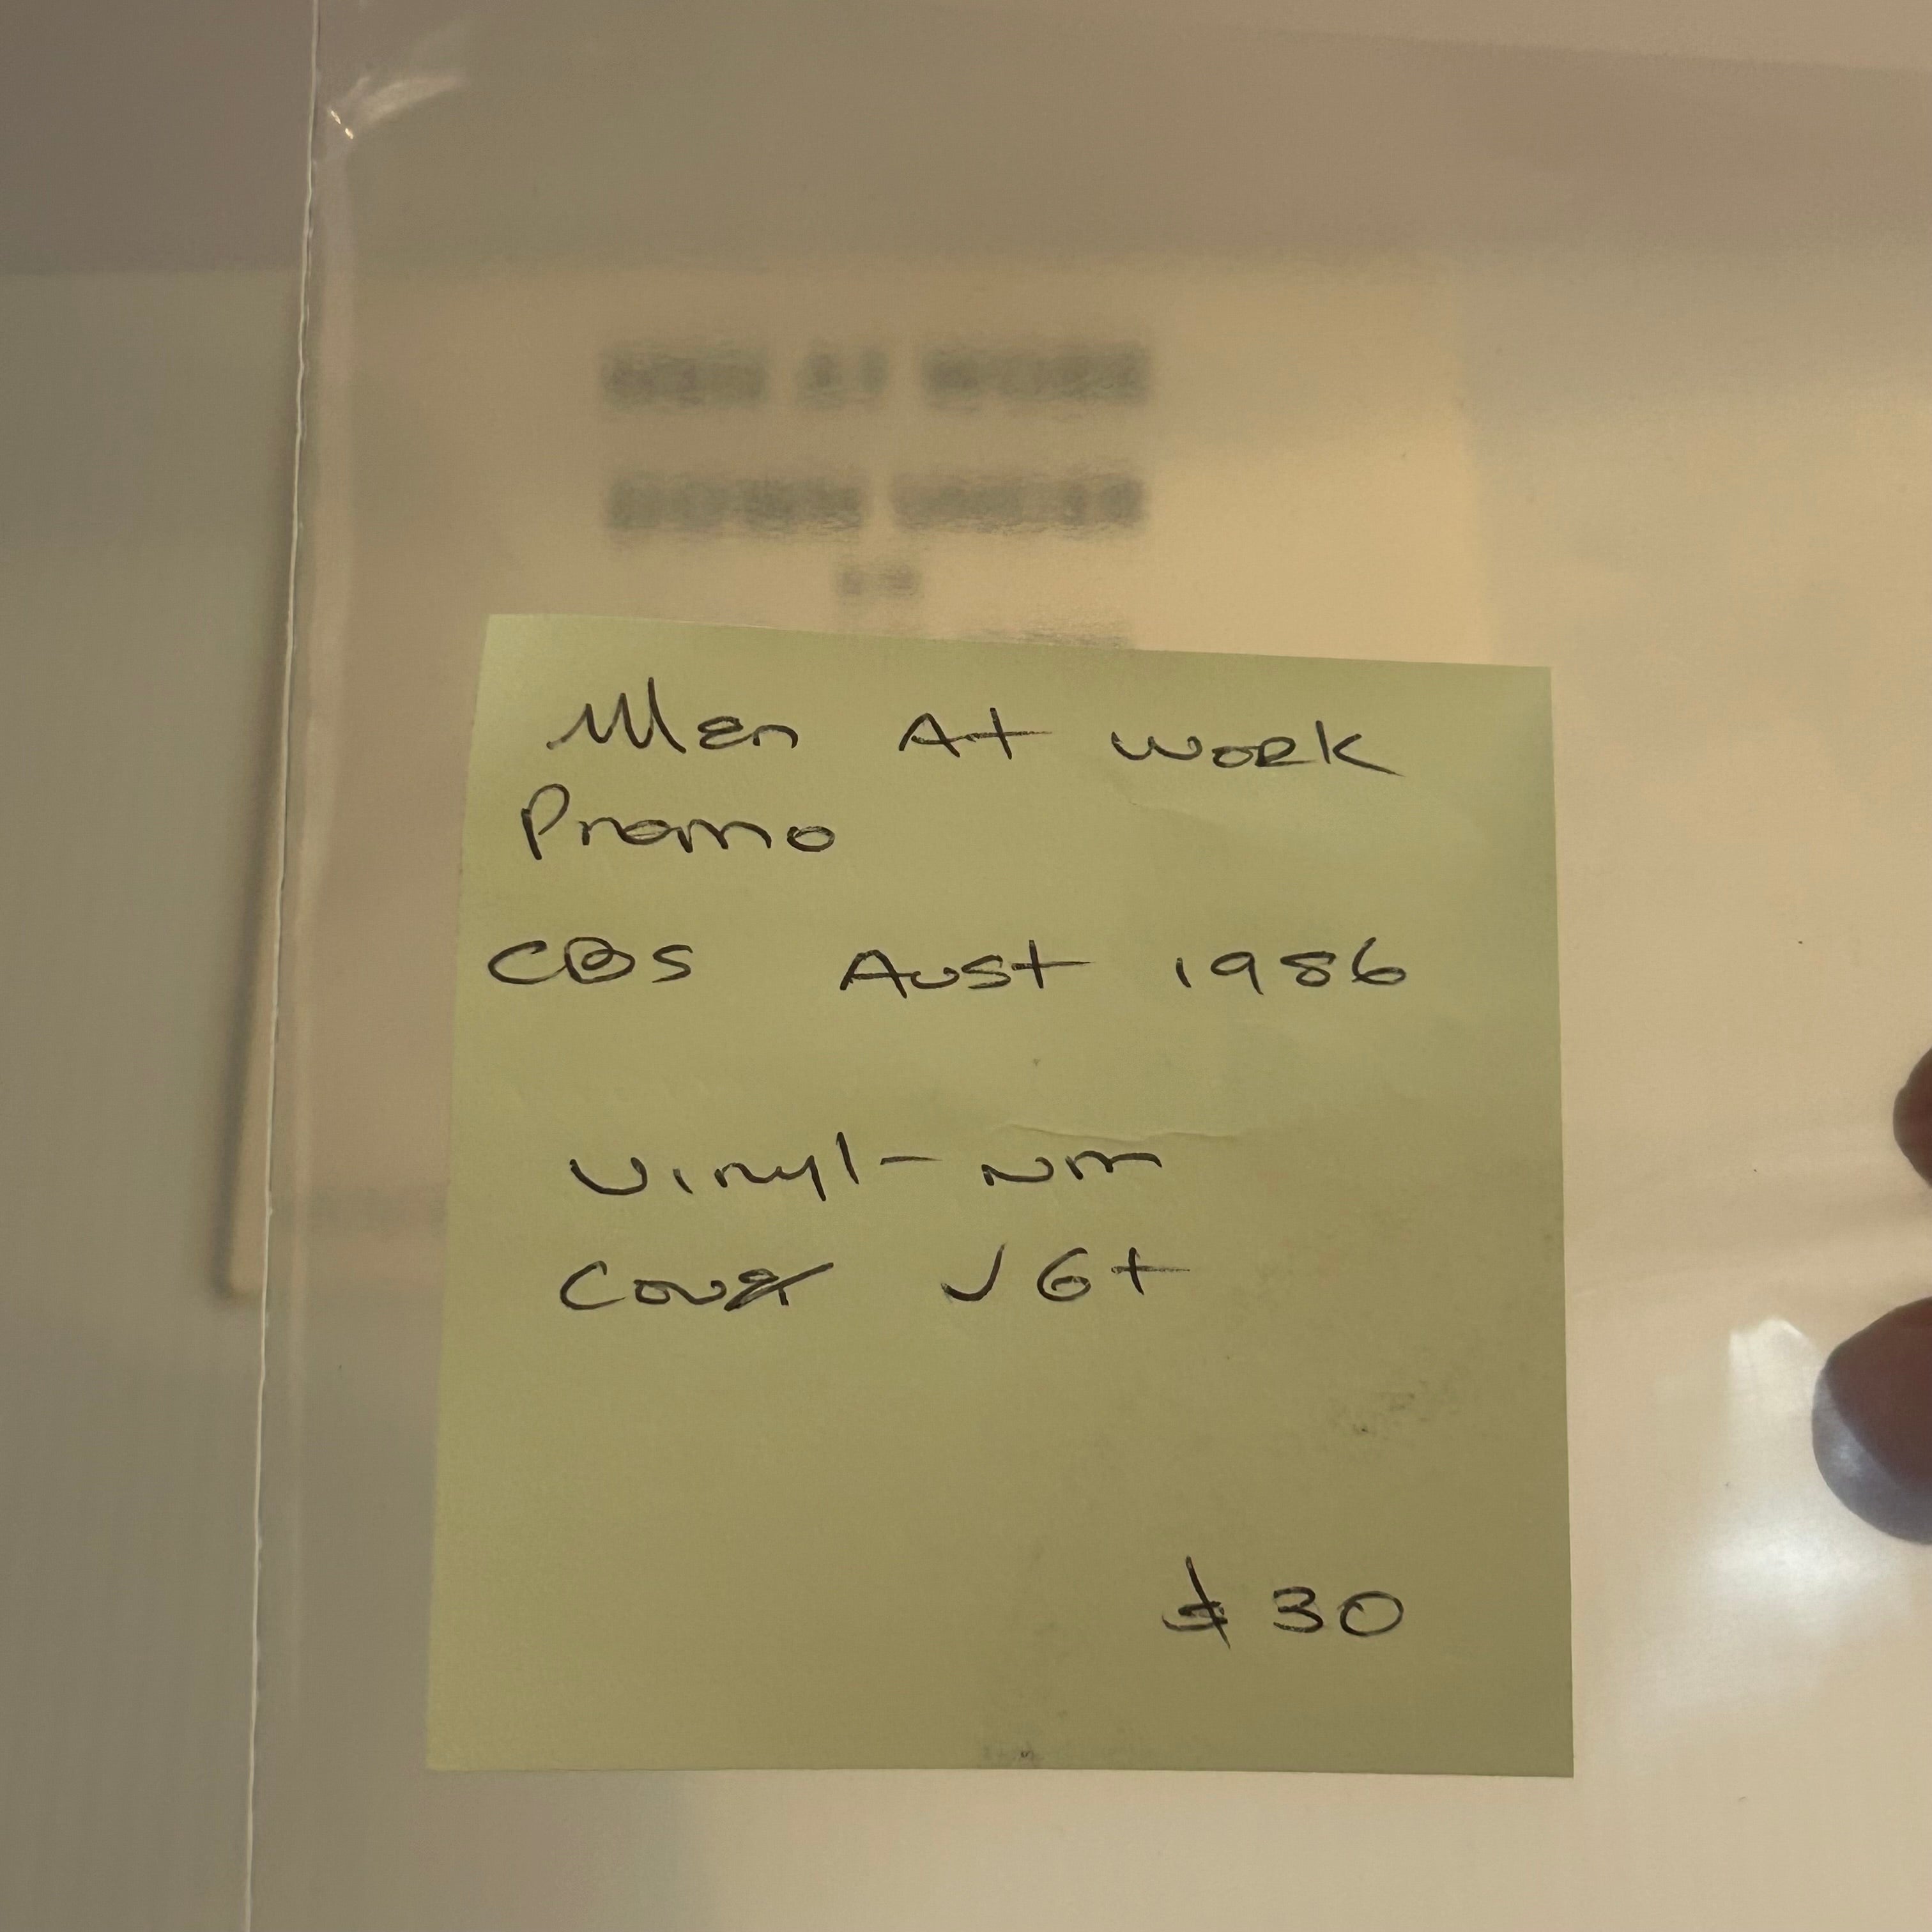 Men At Work
Promo
CBS Aust 1986
Vinyl - NM
Cover VG+
$30